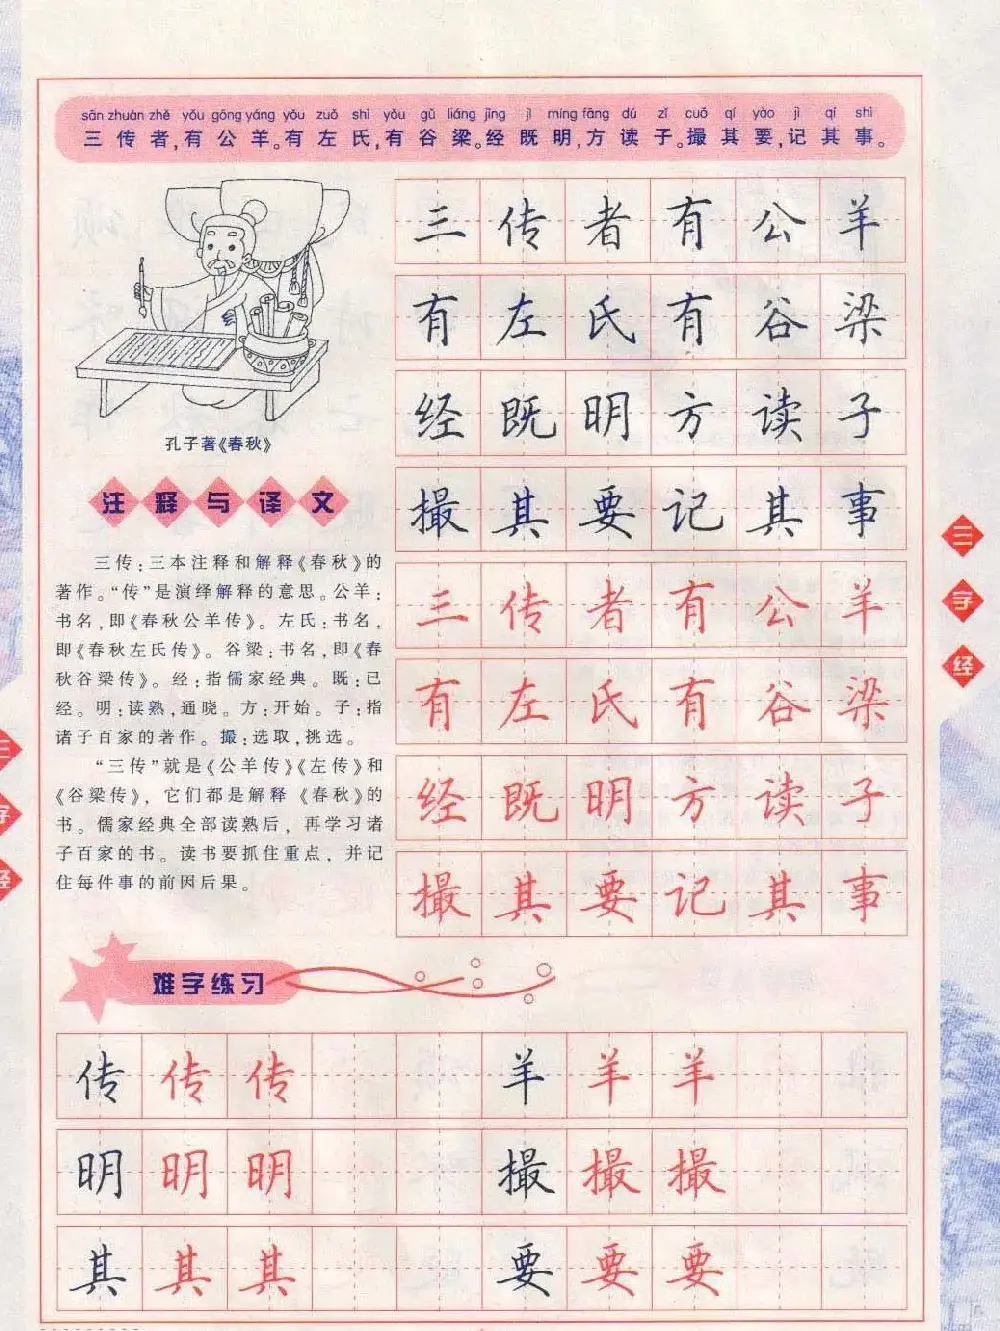 sān zhuàn zhě yǒu gōng yáng yǒu zuǒ shì yǒu gǔ liáng jīng jì míng fāng dú zǐ cuō qí yào jì qí shì
三传者,有公羊。有左氏,有谷梁。经既明,方读子。撮其要,记其事。
孔子著《春秋》
注释与译文
三传:三本注释和解释《春秋》的
著作。“传”是演绎解释的意思。公羊:
书名,即《春秋公羊传》。左氏:书名,
即《春秋左氏传》。谷梁:书名,即《春
秋谷梁传》。经:指儒家经典。既:已
经。明:读熟,通晓。方:开始。子:指
诸子百家的著作。撮:选取,挑选。
“三传”就是《公羊传》《左传》和
《谷梁传》,它们都是解释《春秋》的
书。儒家经典全部读熟后,再学习诸
子百家的书。读书要抓住重点,并记
住每件事的前因后果。
三传者有公羊
有左氏有谷梁
经既明方读子
撮其要记其事
三传者有公羊
有左氏有谷梁
经既明方读子
撮其要记其事
难字练习
传传传 羊羊羊
明明明 撮撮撮
其其其 要要要
三字经
三字经